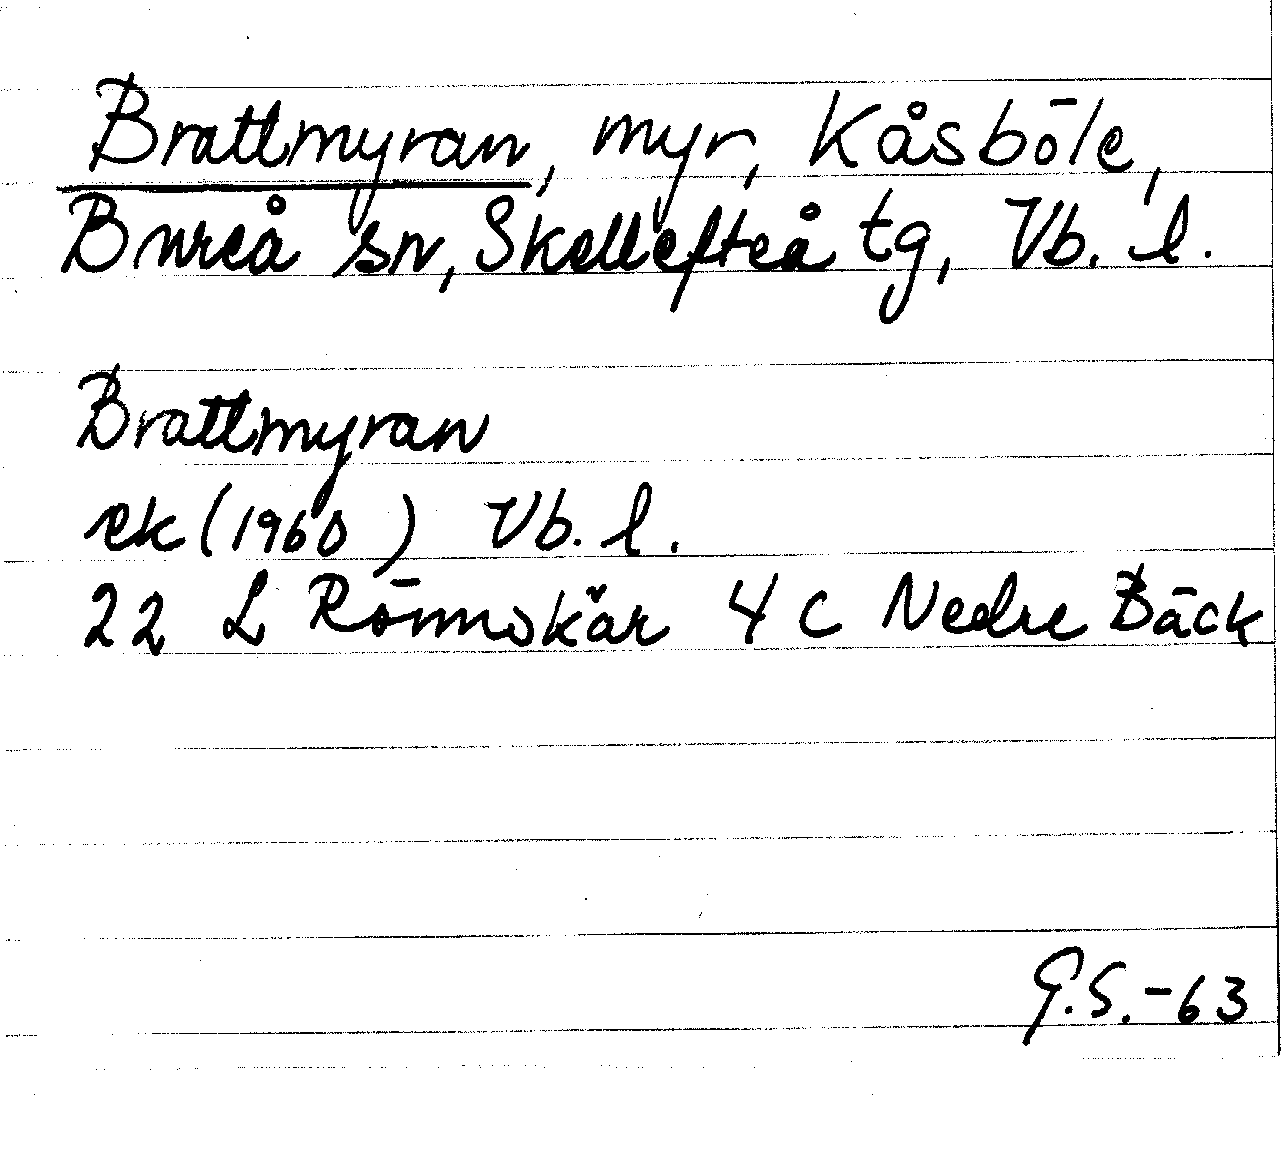 Brattmyran, myr, Kåsböle,
Bureå sn, Skellefteå tg, Vb. l.
Brattmyran
ek (1960) Vb. l.
22 L Rönnskär 4 C Nedre Bäck
G.S.-63